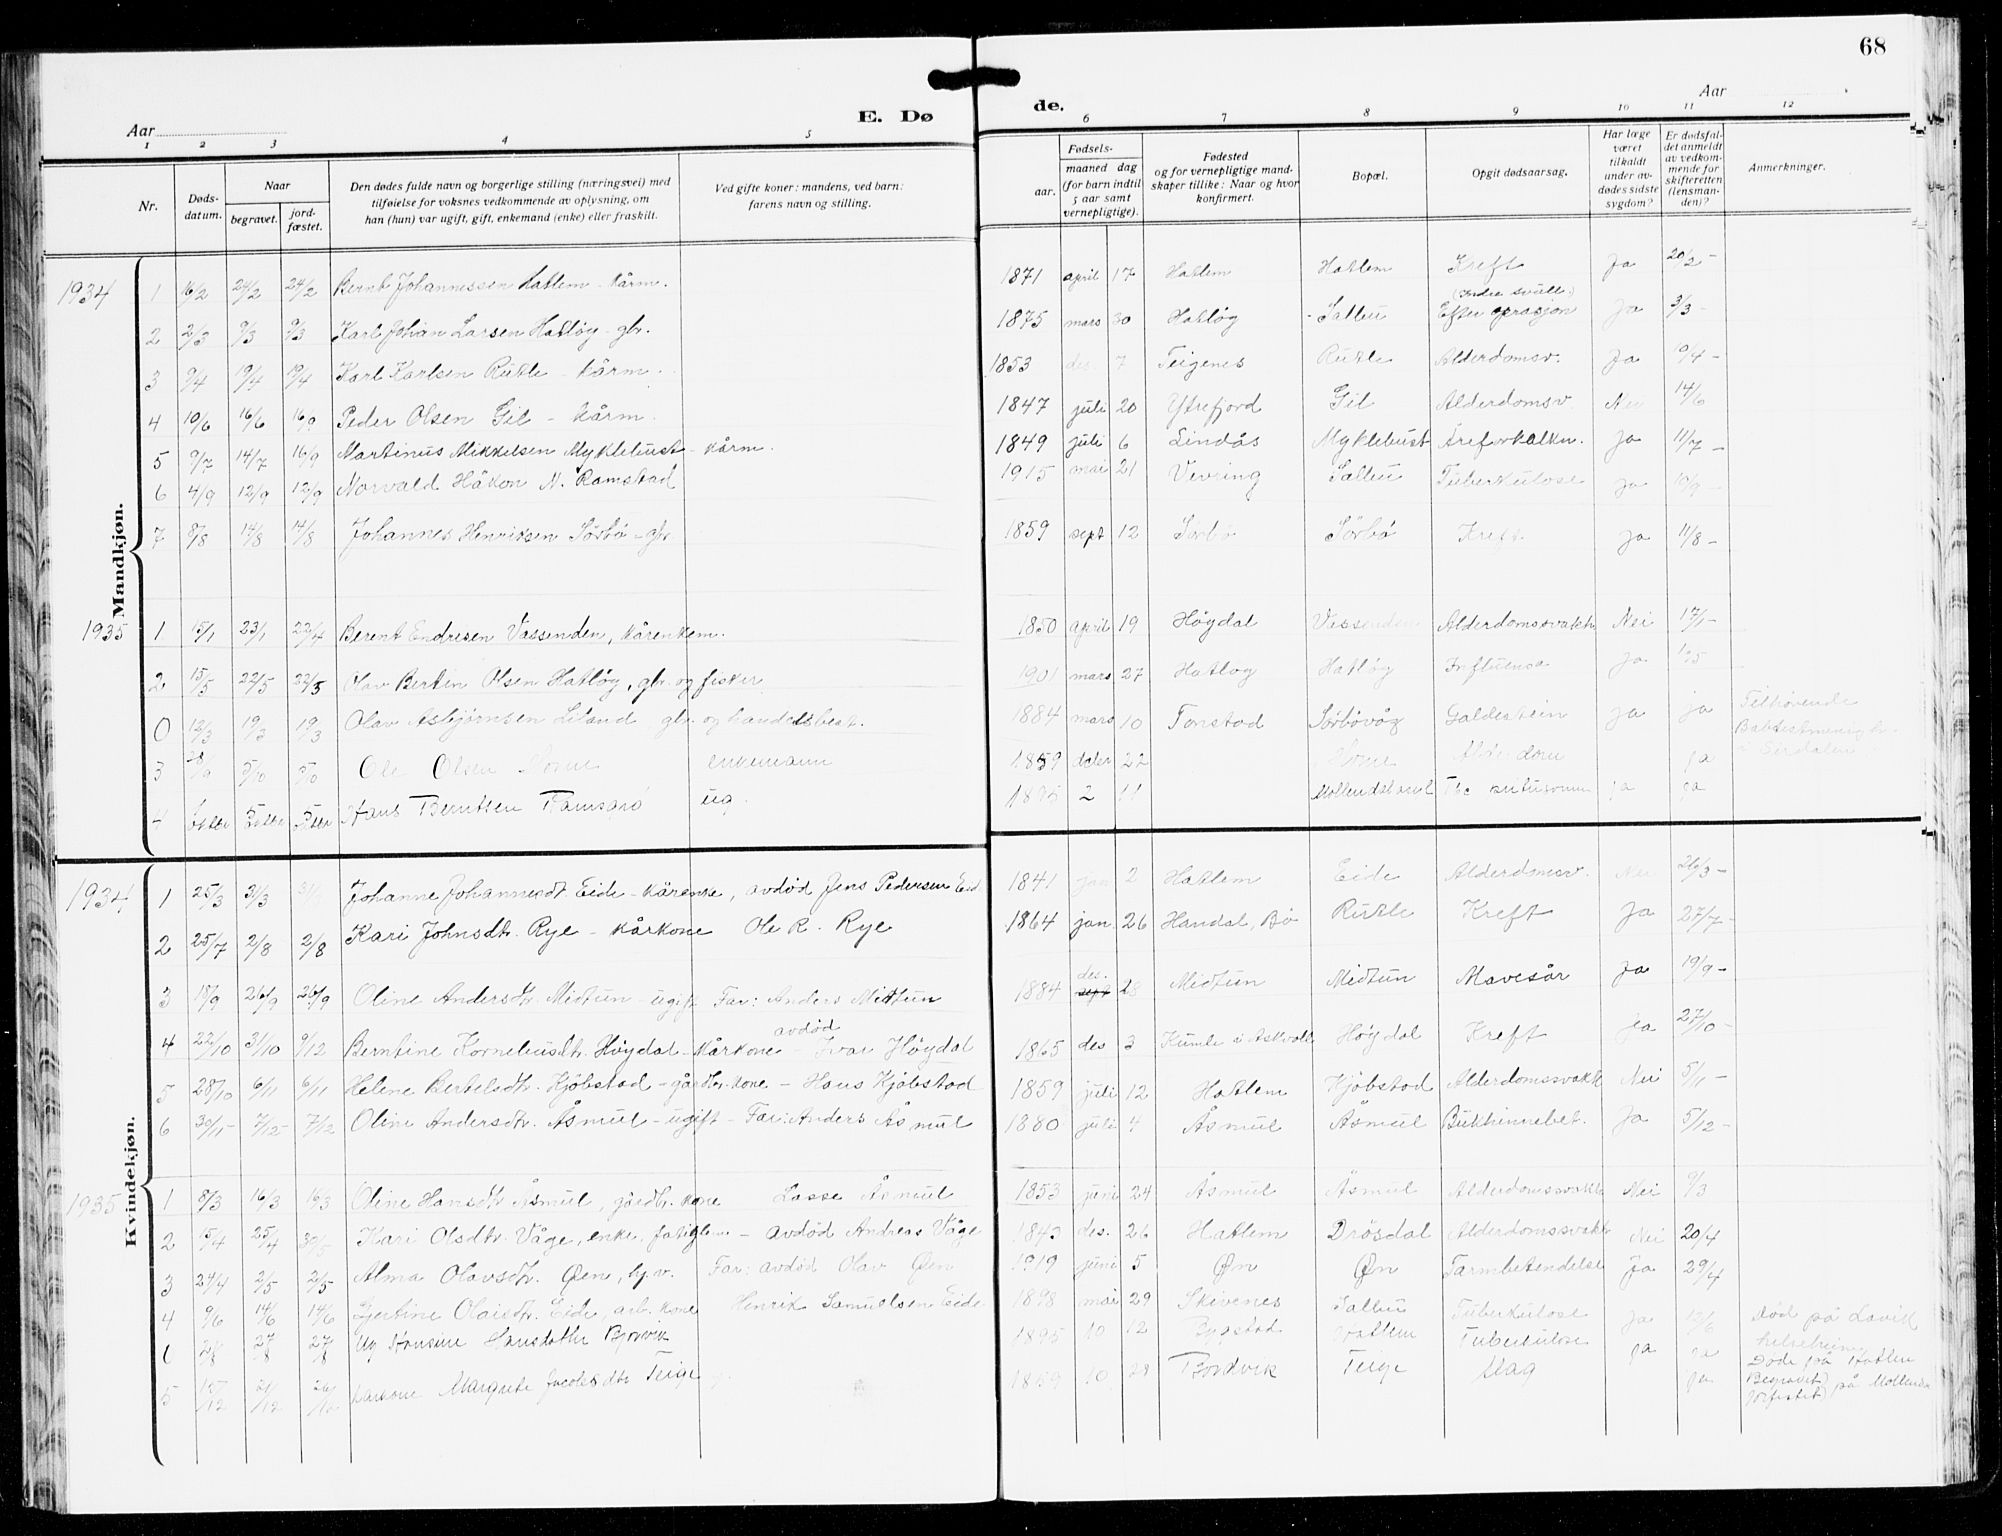 68
E. Dø de.
Aar
Aar
1 2 3 4 5 6 7 8 9 10 11 12
Nr.
Døds-
datum.
Naar
begravet.
jord-
fæstet.
Den dødes fulde navn og borgerlige stilling (næringsvei) med
tilføielse for voksnes vedkommende av oplysning, om
han (hun) var ugift, gift, enkemand (enke) eller fraskilt.
Ved gifte koner: mandens, ved barn:
farens navn og stilling.
Fødsels-
aar.
maaned dag
(for barn indtil
5 aar samt
vernepligtige).
Fødested
og for vernepligtige mand-
skaper tillike: Naar og hvor
konfirmert.
Bopæl.
Opgit dødsaarsag.
Har læge
været
tilkaldt
under av-
dødes sidste
sygdom?
Er dødsfal-
det anmeldt
av vedkom-
mende for
skifteretten
(lensman-
den)?
Anmerkninger.
Mandkjøn.
1934
1 16/2 24/2 24/2 Bernt Johannessen Hatlem - kårm. 1871 april 17 Hatlem Hatlem Kreft Ja 20/2 -
2 2/3 9/3 9/3 Karl Johan Larsen Hatløy - gbr. 1875 mars 30 Hatløy Salbu (Indre svulst) Efter oprasjon Ja 3/3 -
3 9/4 19/4 19/4 Karl Karlsen Rutle - kårm. 1853 des. 7 Teigenes Rutle Alderdomsv. Ja 10/4 -
4 10/6 16/6 16/9 Peder Olsen Gil - kårm. 1847 juli 20 Ytrefjord Gil Alderdomsv. Nei 14/6
5 9/7 14/7 16/9 Martinus Mikkelsen Myklebust - kårm. 1849 juli 6 Lindås Myklebust Åreforkalkn. Ja 11/7 -
6 4/9 12/9 12/9 Norvald Håkon N. Ramstad 1915 mai 21 Vevring Salbu Tuberkulose ja 10/9 -
7 8/8 14/8 14/8 Johannes Henriksen Sørbø - gbr. 1859 sept 12 Sørbø Sørbø Kreft. ja 11/8 -
1935
1 15/1 23/1 22/4 Berent Endresen Vassenden, kårenkem. 1850 april 19 Høydal Vassenden Alderdomssvakh Nei 17/1 -
2 15/5 22/5 22/5 Olav Bertin Olsen Hatløy, gbr. og fisker 1901 mars 27 Hatløy Hatløy Influensa ja
0 12/3 19/3 19/3 Olav Asbjørnsen Liland gbr. og handelsbest. 1884 mars 10 Tonstad Sørbøvåg Galdestein ja ja Tilhøvende
i Sirdalen
3 5/10 5/10 Ole Olsen enkemann 1859 22 ja
4 Hans Berntsen ug. 1895 2 11 ja ja
Kvindekjøn.
1934
1 25/3 31/3 Johanne Johannesdt. Eide - kårenke, avdød Jens Pedersen Eide 1841 jan 2 Hatlem Eide Alderdomsv. Nei 26/3 -
2 25/7 2/8 2/8 Kari Johnsdtr. Rye - kårkone Ole R. Rye 1864 jan. 26 Handal, Bø Rutle Kreft Ja 27/7 -
3 18/9 26/9 26/9 Oline Andersdtr. Midtun - ugift Far: Anders Midtun 1884 sept des. 28 Midtun Midtun Mavesår Ja 19/9 -
4 22/10 31/10 9/12 Berntine Korneliusdtr. Høydal - kårkone - avdød Ivar Høydal 1865 des 3 Kumle i Askvoll Høydal Kreft ja 27/10 -
5 28/10 6/11 6/11 Helene Bertelsdtr. Kjøbstad - gårdbr. kone - Hans Kjøbstad 1859 juli 12 Hatlem Kjøbstad Alderdomssvakh Nei 5/11 -
6 30/11 7/12 7/12 Oline Andersdtr. Åsmul - ugift - Far: Anders Åsmul 1880 juli 4 Åsmul Åsmul Bukhinnebet. Ja 5/12 -
1935
1 8/3 16/3 16/3 Oline Hansdtr. Åsmul, gårdbr. kone Lasse Åsmul 1853 juni 24 Åsmul Åsmul Alderdomssvakh Nei 9/3
2 15/4 25/4 30/5 Kari Olsdtr. Våge, enke, fattiglem - avdød Andreas Våge 1843 des. 26 Hatlem Drøsdal Alderdomssvakh Nei 20/4
3 24/4 2/5 2/5 Alma Olavsdtr. Øen, hj.v. Far: avdød Olav Øen 1919 juni 5 Øn Øn Tarmbetendelse Ja 29/4
4 9/6 14/6 14/6 Gjertine Olaisdtr. Eide, arb. kone Henrik Samuelsen Eide 1898 mai 29 Skivenes Salbu Tuberkulose Ja 12/6 Død på Lavik
helseheim
2/8 27/8 27/8 Ug Hansine Hansdatter 1895 10 12 Bygstad Hatlem Tuberkulose ja ja Døde på Hatlem
5 Kårkone Margrete Jacobsdtr Teige 1859 10 28 Bordvik Teige Slag ja Begravet
jorfestet på